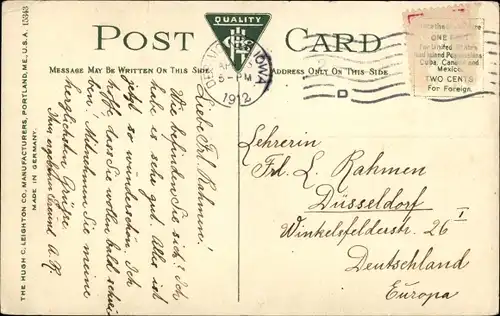 POST CARD
QUALITY
MESSAGE MAY BE WRITTEN ON THIS SIDE
ADDRESS ONLY ON THIS SIDE
IOWA
5-PM
1912
D
ONE
For United States
and Island Possessions
Cuba, Canada and
Mexico.
TWO CENTS
For Foreign.
THE HUGH C. LEIGHTON CO., MANUFACTURERS, PORTLAND, ME., U.S.A.
MADE IN GERMANY.
Liebe Frl. Rahmen!
Wie befinden Sie sich? Ich
habe es sehr gut. Alles ist
jetzt so wunderschön. Ich
hoffe dass Sie wollen bald schrei-
ben. Mitnehmen Sie meine
herzlichsten Grüsse.
Ihre
Lehrerin
Frl. L. Rahmen
Düsseldorf
Winkelsfelderstr. 26 I
Deutschland
Europa